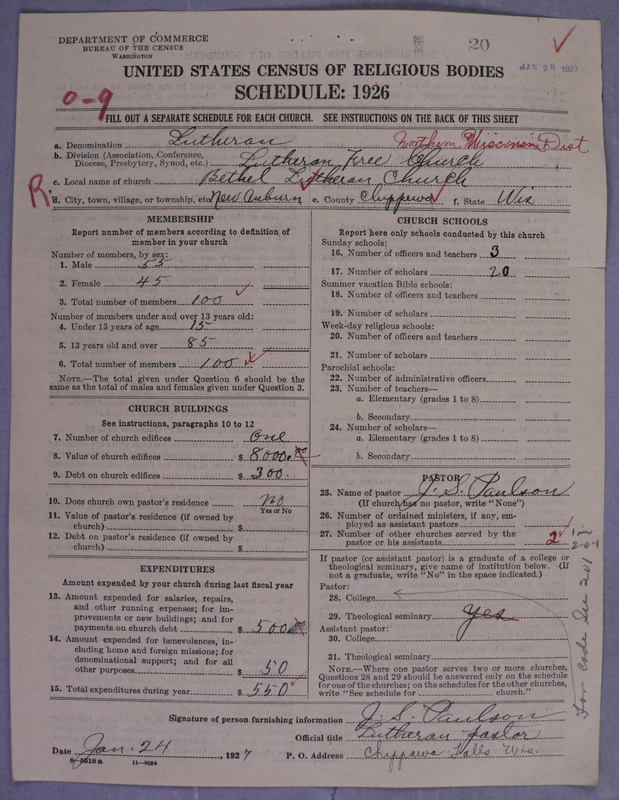 DEPARTMENT OF COMMERCE
BUREAU OF THE CENSUS
WASHINGTON
20
JAN 28 1927
UNITED STATES CENSUS OF RELIGIOUS BODIES
SCHEDULE: 1926
0-9
FILL OUT A SEPARATE SCHEDULE FOR EACH CHURCH. SEE INSTRUCTIONS ON THE BACK OF THIS SHEET
a. Denomination Lutheran Northern Wisconsin Dist
b. Division (Association, Conference,
Diocese, Presbytery, Synod, etc.) Lutheran Free Church
c. Local name of church Bethel Lutheran Church
R.
d. City, town, village, or township, etc. New Auburn e. County Chippewa f. State Wis
MEMBERSHIP
Report number of members according to definition of
member in your church
Number of members, by sex:
1. Male 55
2. Female 45
3. Total number of members 100
Number of members under and over 13 years old:
4. Under 13 years of age 15
5. 13 years old and over 85
6. Total number of members 100
NOTE.—The total given under Question 6 should be the
same as the total of males and females given under Question 3.
CHURCH BUILDINGS
See instructions, paragraphs 10 to 12
7. Number of church edifices One
8. Value of church edifices $ 8000.00
9. Debt on church edifices $ 300.
10. Does church own pastor's residence No
Yes or No
11. Value of pastor's residence (if owned by
church) $
12. Debt on pastor's residence (if owned by
church) $
EXPENDITURES
Amount expended by your church during last fiscal year
13. Amount expended for salaries, repairs,
and other running expenses; for im-
provements or new buildings; and for
payments on church debt $ 500.00
14. Amount expended for benevolences, in-
cluding home and foreign missions; for
denominational support; and for all
other purposes $ 50
15. Total expenditures during year $ 550
CHURCH SCHOOLS
Report here only schools conducted by this church
Sunday schools:
16. Number of officers and teachers 3
17. Number of scholars 20
Summer vacation Bible schools:
18. Number of officers and teachers
19. Number of scholars
Week-day religious schools:
20. Number of officers and teachers
21. Number of scholars
Parochial schools:
22. Number of administrative officers
23. Number of teachers—
a. Elementary (grades 1 to 8)
b. Secondary
24. Number of scholars—
a. Elementary (grades 1 to 8)
b. Secondary
PASTOR
25. Name of pastor J. S. Paulson
(If church has no pastor, write "None")
26. Number of ordained ministers, if any, em-
ployed as assistant pastors
27. Number of other churches served by the
pastor or his assistants 2
If pastor (or assistant pastor) is a graduate of a college or
theological seminary, give name of institution below. (If
not a graduate, write "No" in the space indicated.)
Pastor:
28. College
29. Theological seminary yes
Assistant pastor:
30. College
31. Theological seminary
NOTE.—Where one pastor serves two or more churches,
Questions 28 and 29 should be answered only on the schedule
for one of the churches; on the schedules for the other churches,
write "See schedule for church."
For Code See 201
Signature of person furnishing information J. S. Paulson
Official title Lutheran pastor
Date Jan. 24, 1927 P. O. Address Chippewa Falls Wis.
8-5518a 11-9054